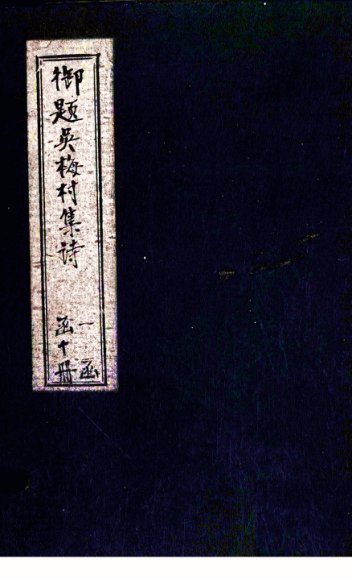 御題吳梅村集詩
一函
函十冊